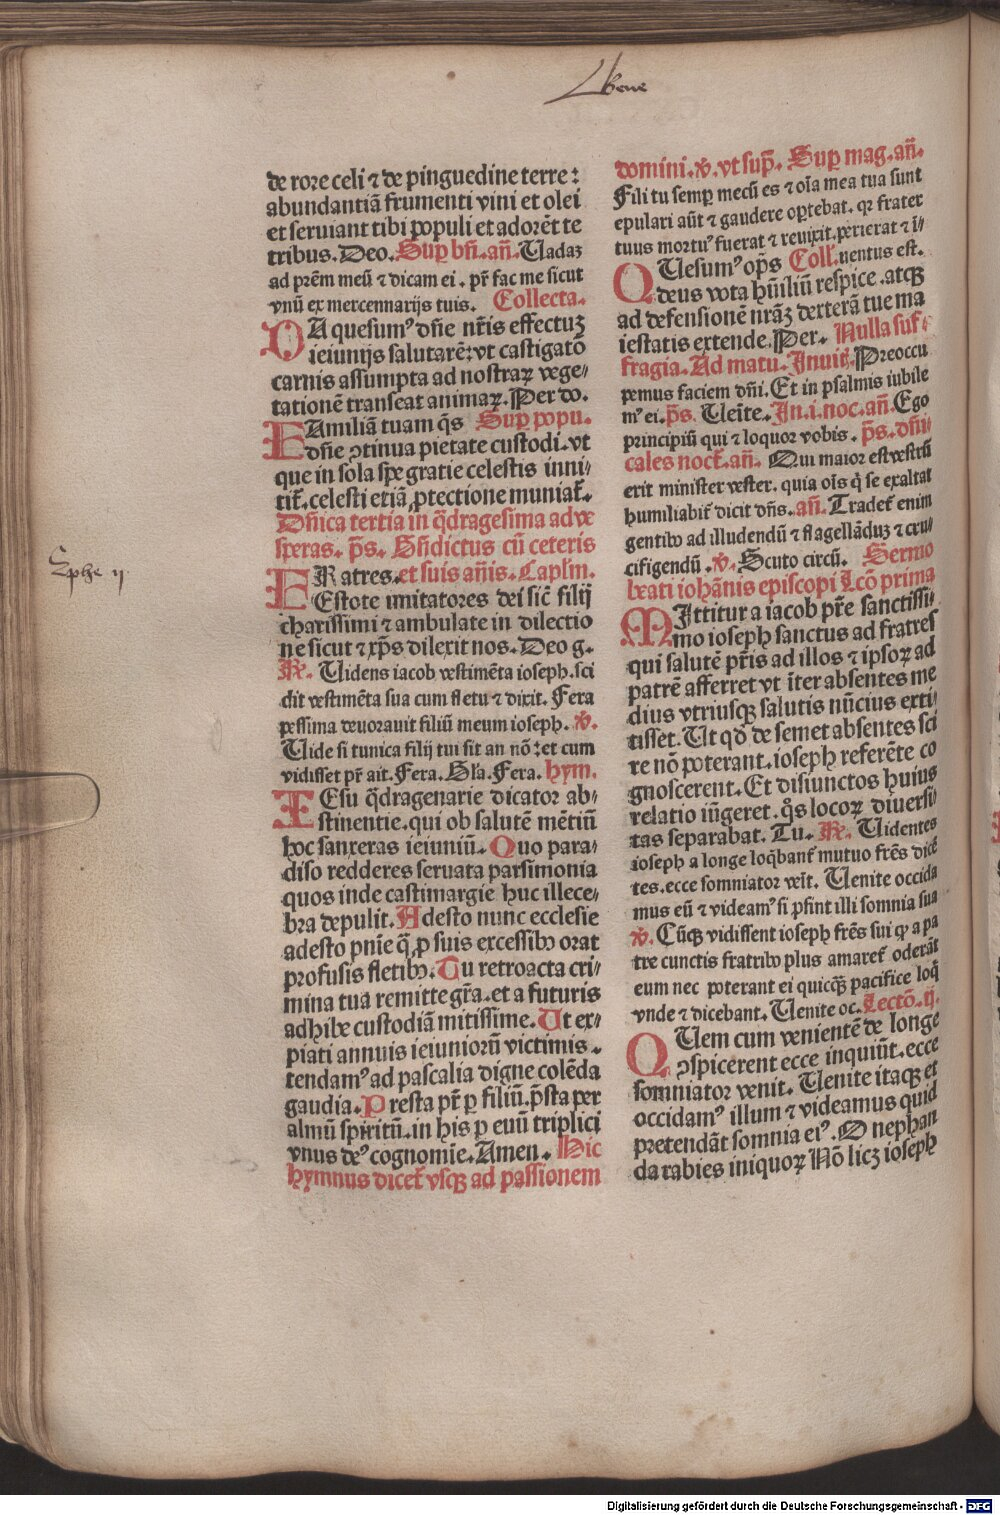 bene
de rore celi ⁊ de pinguedine terre:
abundantiā frumenti vini et olei
et seruiant tibi ꝓpuli et adorēt te
tribus. Deo. Suꝑ bn̄. an̄. Uadaꝫ
ad prēm meū ⁊ dicam ei. pr̄ fac me sicut
vnū ex mercennarijs tuis. Collecta.
DA quesumꝰ dn̄e nr̄is effectuꝫ
ieiunijs salutarē: vt castigatō
carnis assumpta ad nostraꝝ vege/
tationē transeat animaꝝ. Per do.
FAmiliā tuam q̄s Suꝑ popu.
dn̄e ꝯtinua pietate custodi. vt
que in sola spe gratie celestis inni/
tit᷑. celesti etiā ꝓtectione muniat᷑.
Dn̄ica tertia in q̄dragesima ad ve
speras. p̄s. Bn̄dictus cū ceteris
FRatres. et suis an̄is. Capl'm.
Estote imitatores dei sic̄ filij
charissimi ⁊ ambulate in dilectio
ne sicut ⁊ xp̄s dilexit nos. Deo g.
℟. Uidens iacob vestimēta ioseph. sci
dit vestimēta sua cum fletu ⁊ dixit. Fera
pessima deuorauit filiū meum ioseph. ℣.
Uide si tunica filij tui sit an nō: et cum
vidisset pr̄ ait. Fera. Gl'a. Fera. hym.
IEsu q̄dragenarie dicator ab/
stinentie. qui ob salutē mētiū
hoc sanxeras ieiuniū. Quo para/
diso redderes seruata parsimonia
quos inde castimargie huc illece/
bra depulit. Adesto nunc ecclesie
adesto pn̄ie q̄ ꝓ suis excessibꝰ orat
profusis fletibꝰ. Tu retroacta cri/
mina tua remitte gr̄a. et a futuris
adhibe custodiā mitissime. Ut ex/
piati annuis ieiuniorū victimis.
tendamꝰ ad pascalia digne colēda
gaudia. Presta pr̄ ꝑ filiū. p̄sta per
almū spiritū. in his ꝑ euū triplici
vnus deꝰ cognomīe. Amen. Hic
hymnus dicet᷑ vsqꝫ ad passionem
Ephe ij
domini. ℣. vt sup̄. Suꝑ mag. an̄.
Fili tu semꝑ mecū es ⁊ oīa mea tua sunt
epulari aūt ⁊ gaudere oꝑtebat. qꝛ frater
tuus mortuꝰ fuerat ⁊ reuixit. perierat ⁊ ī/
QUesumꝰ op̄s Coll'. uentus est.
deus vota hūiliū respice. atqꝫ
ad defensionē nrāꝫ dexterā tue ma
iestatis extende. Per. Nulla suf/
fragia. Ad matu. Inuit᷑. Preoccu
pemus faciem dn̄i. Et in psalmis iubile
mꝰ ei. p̄s. Ueīte. In .i. noc. an̄. Ego
principiū qui ⁊ loquor vobis. p̄s. dn̄i/
cales noct᷑. an̄. Qui maior est vestrū
erit minister vester. quia oīs q̄ se exaltat
humiliabit᷑ dicit dn̄s. an̄. Tradet᷑ enim
gentibꝰ ad illudendū ⁊ flagellāduꝫ ⁊ cru/
cifigendū. ℣. Scuto circū. Sermo
beati iohānis episcopi Lcō prima
MIttitur a iacob pr̄e sanctissi/
mo ioseph sanctus ad fratres
qui salutē pr̄is ad illos ⁊ ipsoꝝ ad
patrē afferret vt īter absentes me
dius vtriusqꝫ salutis nūcius exti/
tisset. Ut qd̄ de semet absentes sci
re nō poterant. ioseph referēte co
gnoscerent. Et disiunctos huius
relatio iūgeret. q̄s locoꝝ diuersi/
tas separabat. Tu. ℟. Uidentes
ioseph a longe loq̄bant᷑ mutuo fr̄es dicē
tes. ecce somniator veīt. Uenite occida
mus eū ⁊ videamꝰ si ꝓsint illi somnia sua
℣. Cūqꝫ vidissent ioseph fr̄es sui ꝙ a pa
tre cunctis fratribꝰ plus amaret᷑ oderāt
eum nec poterant ei quicqꝫ̄ pacifice loq̄
vnde ⁊ dicebant. Uenite oc. Lectō. ij.
QUem cum venientē de longe
ꝯspicerent ecce inquiūt. ecce
somniator venit. Uenite itaqꝫ et
occidamꝰ illum ⁊ videamus quid
pretendāt somnia eiꝰ. O nephan
da rabies iniquoꝝ Nō licꝫ ioseph
Digitalisierung gefördert durch die Deutsche Forschungsgemeinschaft - DFG